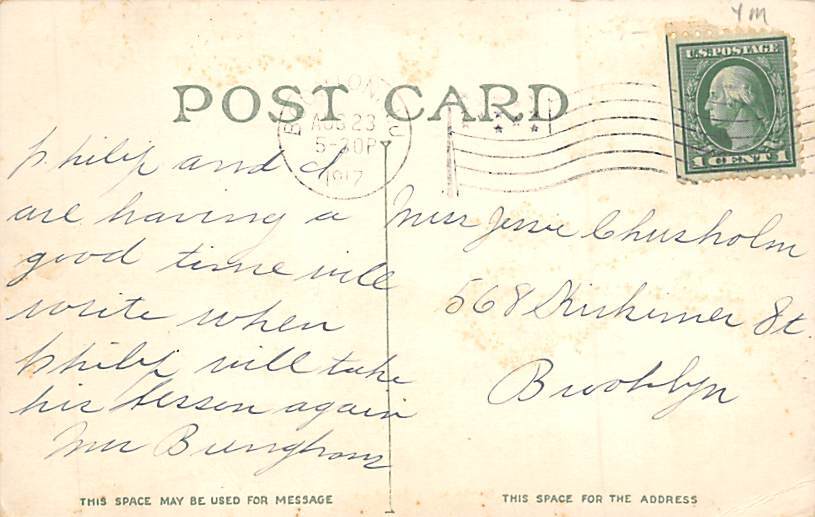 YM
U.S. POSTAGE
1 CENT 1
POST CARD
AUG 23
5-30P
1917
Philip and I
are having a
good time will
write when
Philip will take
his lesson again
Mrs
Miss Jessie Chisholm
568 St
Brooklyn
THIS SPACE MAY BE USED FOR MESSAGE
THIS SPACE FOR THE ADDRESS